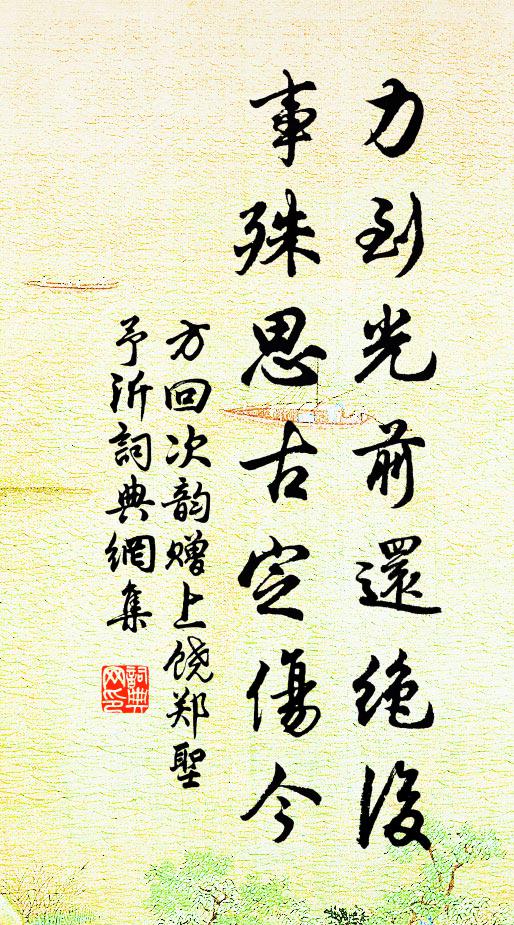 力到光前還絶後
事殊思古定傷今
方回次韵赠上饶郑聖
予沂詞典網集
詞典网印